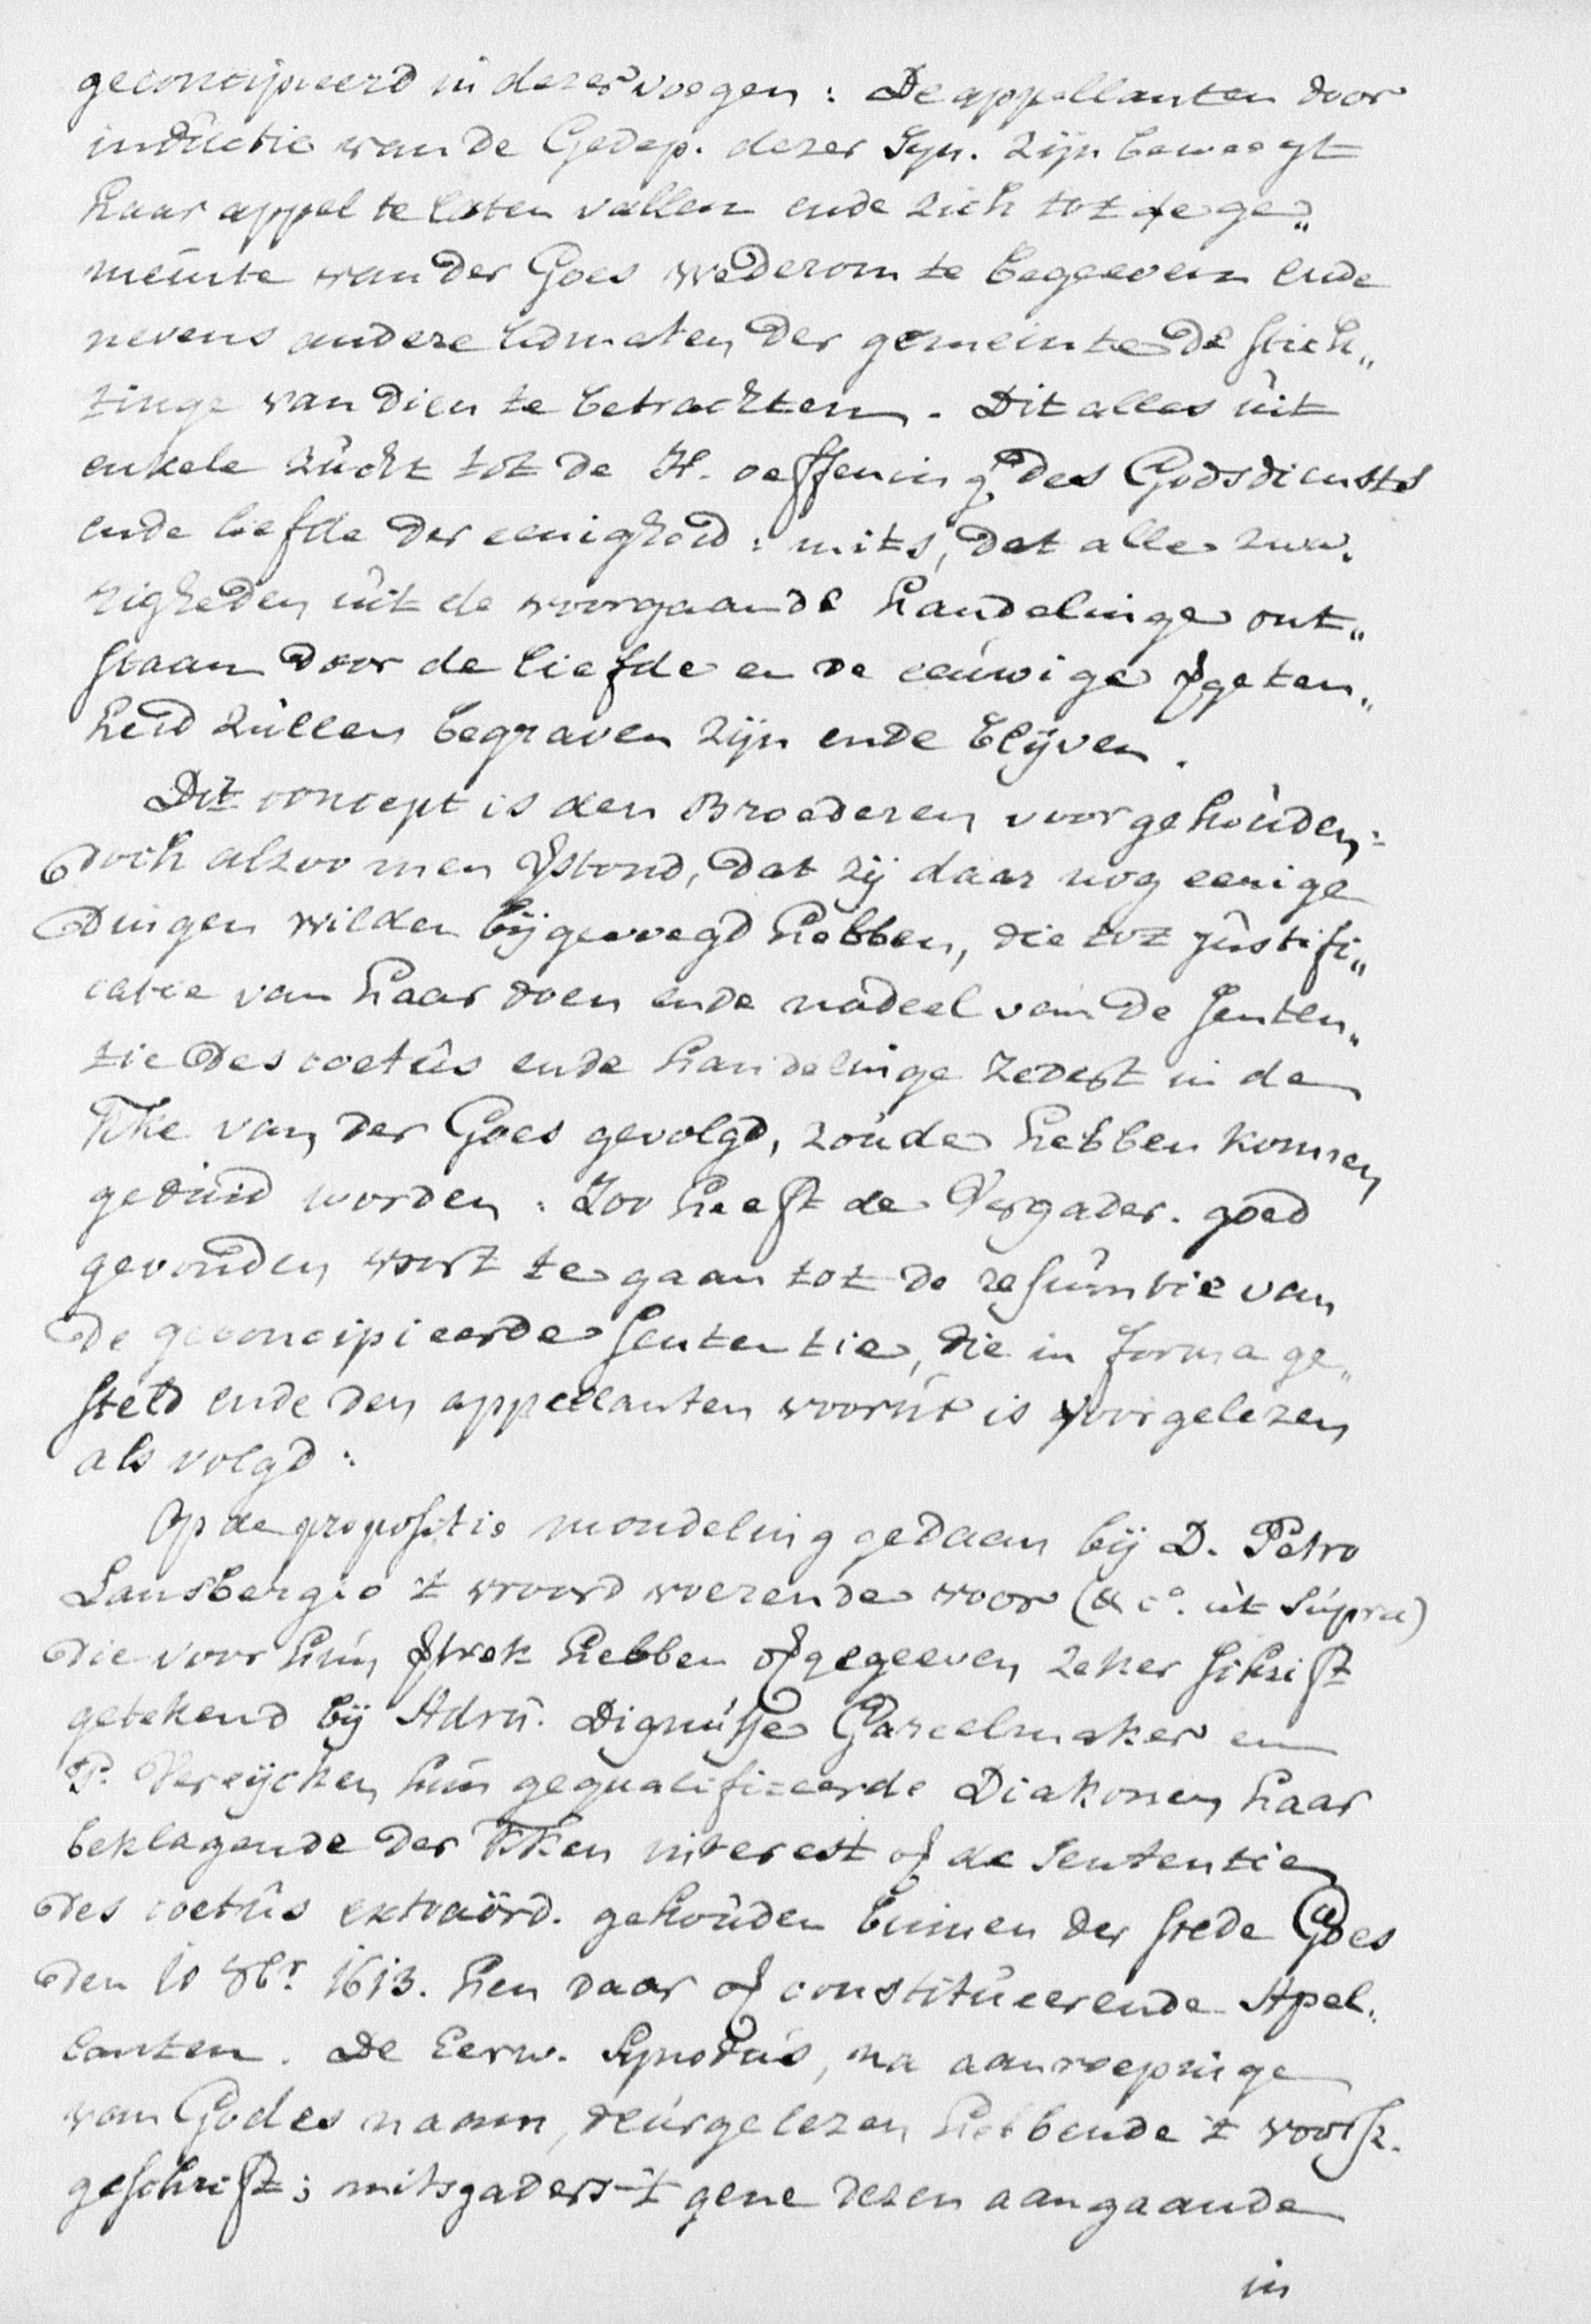 geconcipieerd in dezer voegen: De appellanten door
inductie van de Gedep. dezer Syn. zijn beweegt
haar appel te laten vallen ende zich tot de ge„
meinte van der Goes wederom te begeeven ende
nevens andere lidmaten der gemeinte de stich„
tinge van dien te betrachten. Dit alles uit
enkele zucht tot de H. oeffening des Godsdiensts
ende liefde der eenigheid: mits, dat alle zwa.
righeden uit de voorgaande handelinge ont„
staan door de liefde en de eeuwige vgeten„
heid zullen begraven zijn ende blijven.
Dit concept is den Broederen voorgehouden:
doch alzoo men vstond, dat zij daar nog eenige
dingen wilden bijgevoegd hebben, die tot justifi„
catie van haar doen ende nadeel van de senten„
tie des coetus ende handelinge zedert in de
Kke van der Goes gevolgd, zoude hebben konnen
geduid worden: Zoo heeft de Vergader. goed
gevonden voort te gaan tot de resumtie van
de geconcipieerde sententie, die in forma ge„
steld ende den appellanten vooruit is voorgelezen
als volgd:
Op de propositie mondeling gedaan bij D. Petro
Lansbergio 't woord voerende voor (& co. ut supra)
die voor hun vtrek hebben ofgegeeven zeker schrift
getekend bij Adrn. Dignusse Gareelmaker en
P. Vereycken hun gequalificeerde Diakonen haar
beklagende der Kken interest of de sententie
des coetus extraörd. gehouden binnen der stede Goes
den 10 8br. 1613. hen daar of constitueerende Apel„
lanten. De Eerw. Synodus, na aanroepinge
van Godes naam, deurgelezen hebbende 't voorsz.
geschrift; mitsgaders 't gene dezen aangaande
in